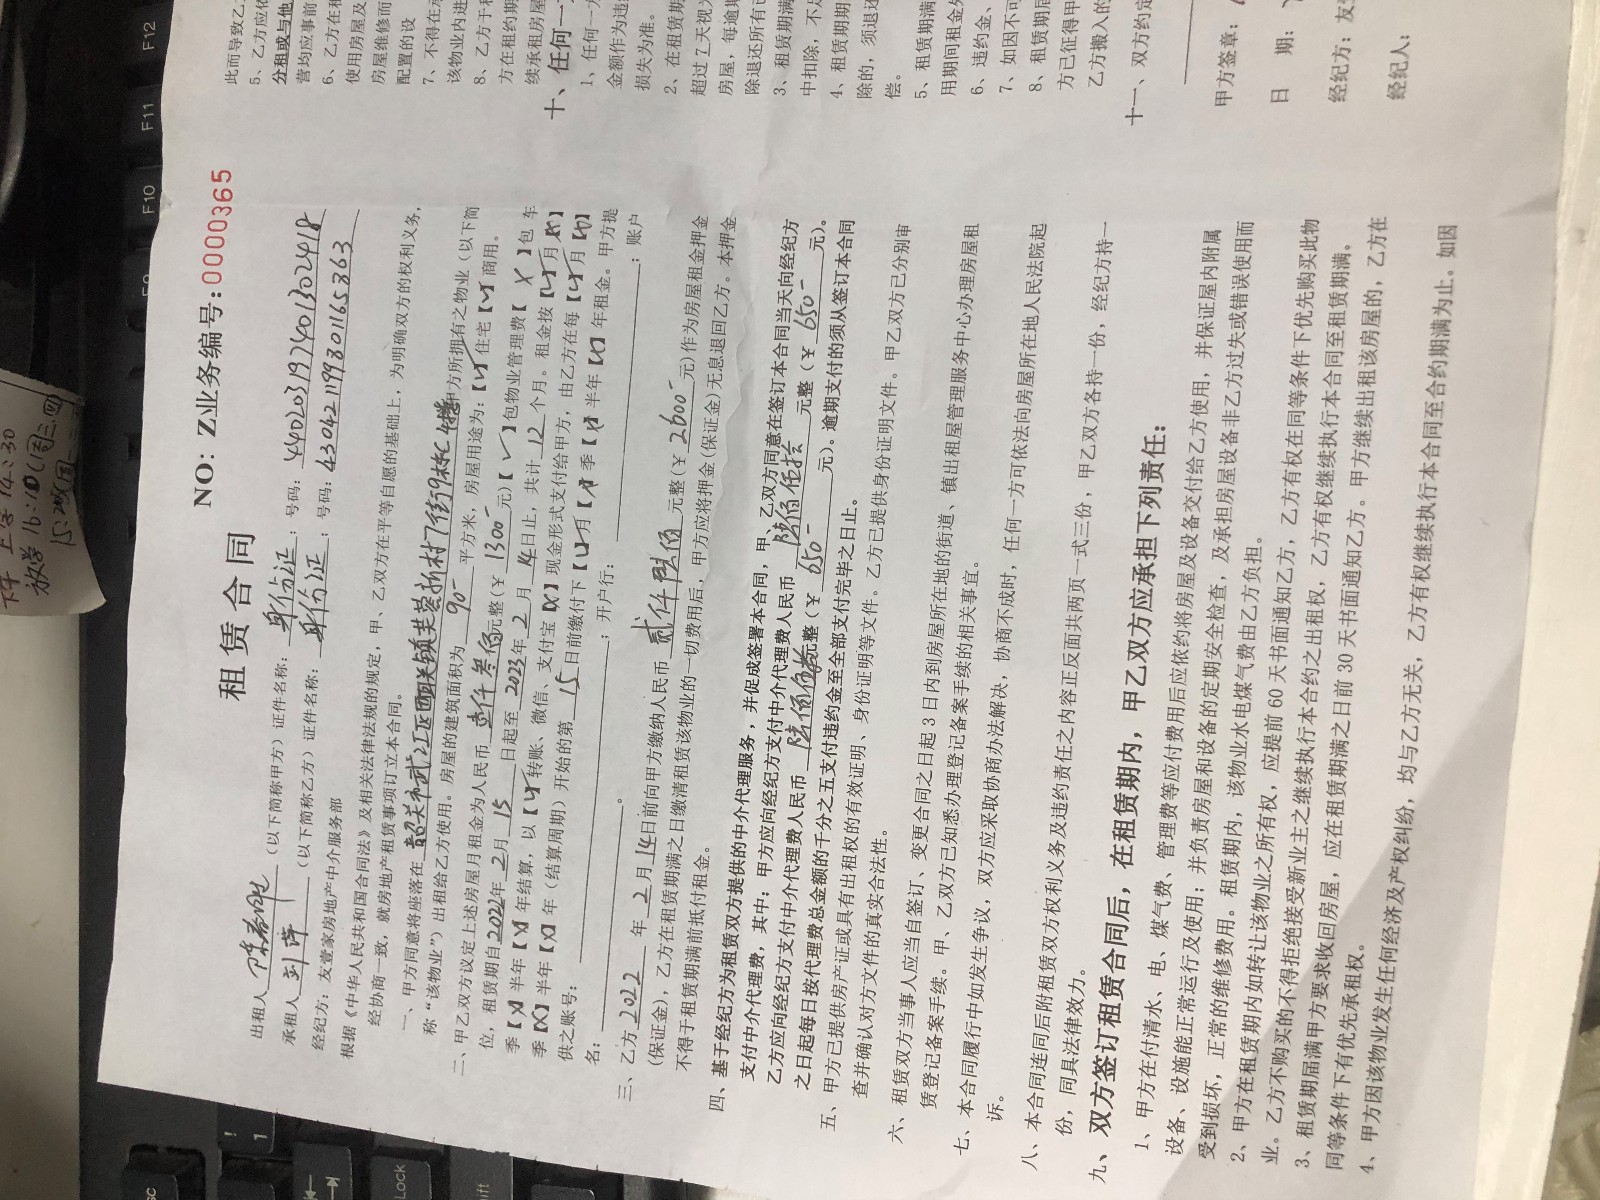 下午上学14:30
放学16:10(周三、四
NO: Z业务编号:0000365
租赁合同
出租人(以下简称甲方)证件名称:身份证;号码:440203197401302418
承租人 刘萍(以下简称乙方)证件名称:身份证;号码:430421199801165363
经纪方:友壹家房地产中介服务部
根据《中华人民共和国合同法》及相关法律法规的规定,甲、乙双方在平等自愿的基础上,为明确双方的权利义务,
经协商一致,就房地产租赁事项订立本合同。
一、甲方同意将座落在韶关市武江区西联镇芙蓉新村丁街9栋C4楼甲方所拥有之物业(以下简
称“该物业”)出租给乙方使用。房屋的建筑面积为90平方米,房屋用途为:【✓】住宅【】商用。
二、甲乙双方议定上述房屋月租金为人民币壹仟叁佰元整(¥1300-元)【✓】包物业管理费【X】包车
位,租赁期自2022年2月15日起至2023年2月14日止,共计12个月。租金按【✓】月【X】
季【X】半年【X】年结算,以【✓】转账、微信、支付宝【X】现金形式支付给甲方,由乙方在每【✓】月【X】
季【X】半年【X】年(结算周期)开始的第15日前缴付下【✓】月【X】季【X】半年【X】年租金。甲方提
供之账号:;开户行:;账户
名:。
三、乙方2022年2月14日前向甲方缴纳人民币贰仟陆佰元整(¥2600-元)作为房屋租金押金
(保证金),乙方在租赁期满之日缴清租赁该物业的一切费用后,甲方应将押金(保证金)无息退回乙方。本押金
不得于租赁期满前抵付租金。
四、基于经纪方为租赁双方提供的中介代理服务,并促成签署本合同,甲、乙双方同意在签订本合同当天向经纪方
支付中介代理费,其中:甲方应向经纪方支付中介代理费人民币陆佰伍拾元整(¥650-元)。
乙方应向经纪方支付中介代理费人民币陆佰伍拾元整(¥650-元)。逾期支付的须从签订本合同
之日起每日按代理费总金额的千分之五支付违约金至全部支付完毕之日止。
五、甲方已提供房产证或具有出租权的有效证明、身份证明等文件。乙方已提供身份证明文件。甲乙双方已分别审
查并确认对方文件的真实合法性。
六、租赁双方当事人应当自签订、变更合同之日起3日内到房屋所在地的街道、镇出租屋管理服务中心办理房屋租
赁登记备案手续。甲、乙双方已知悉办理登记备案手续的相关事宜。
七、本合同履行中如发生争议,双方应采取协商办法解决,协商不成时,任何一方可依法向房屋所在地人民法院起
诉。
八、本合同连同后附租赁双方权利义务及违约责任之内容正反面共两页一式三份,甲乙双方各持一份,经纪方持一
份,同具法律效力。
九、双方签订租赁合同后,在租赁期内,甲乙双方应承担下列责任:
1、甲方在付清水、电、煤气费、管理费等应付费用后应依约将房屋及设备交付给乙方使用,并保证屋内附属
设备、设施能正常运行及使用;并负责房屋和设备的定期安全检查,及承担房屋设备非乙方过失或错误使用而
受到损坏,正常的维修费用。租赁期内,该物业水电煤气费由乙方负担。
2、甲方在租赁期内如转让该物业之所有权,应提前60天书面通知乙方,乙方有权在同等条件下优先购买此物
业。乙方不购买的不得拒绝接受新业主之继续执行本合约之出租权,乙方有权继续执行本合同至租赁期满。
3、租赁期届满甲方要求收回房屋,应在租赁期满之日前30天书面通知乙方。甲方继续出租该房屋的,乙方在
同等条件下有优先承租权。
4、甲方因该物业发生任何经济及产权纠纷,均与乙方无关,乙方有权继续执行本合同至合约期满为止。如因
此而导致乙
5、乙方应依
分租或与他
营均应事前
6、乙方在租
使用房屋及
房屋维修而
配置的设
7、不得在承
该物业内进
8、乙方于租
方在租约期
续承租房屋
十、任何一方
1、任何一方
金额作为违
损失为准。
2、在租赁期
超过7天视为
房屋,每逾期
除退还所有已
3、租赁期满
中扣除,不足
4、租赁期期
除的,须退还
偿。
5、租赁期满
用期间租金处
6、违约金、
7、如因不可
8、租赁期届
方已征得甲
乙方搬入的
十一、双方约定
甲方签章:
日 期:
经纪方:友
经纪人:
F9
F10
F11
F12
! 1
Lock